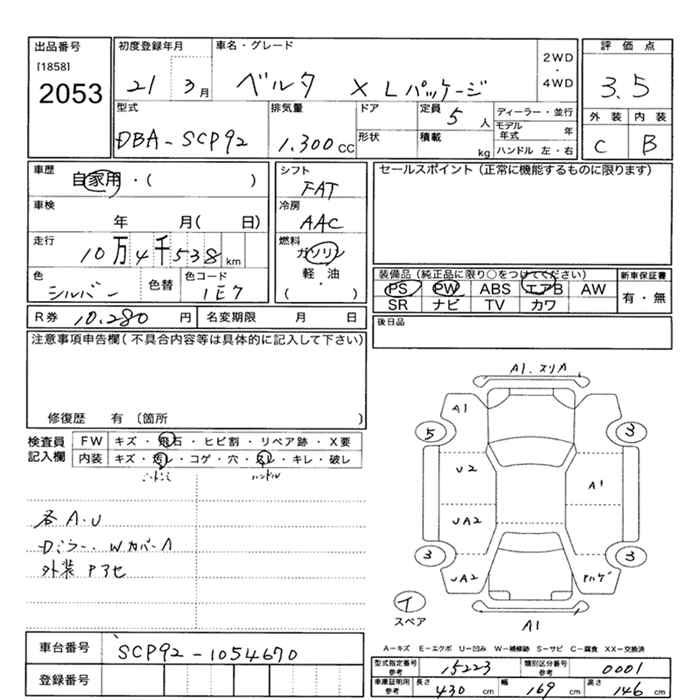 出品番号
[1858]
2053
初度登録年月
21 3月
車名・グレード
ベルタ X Lパッケージ
2WD
・
4WD
評価点
3.5
外装 内装
C B
型式
DBA-SCP92
排気量
1.300CC
ドア
形状
定員 5 人
積載 kg
ディーラー・並行
モデル年式 年
ハンドル 左・右
車歴
自家用・( )
車検
年 月( 日)
走行
10万4千538km
色
シルバー
色替
色コード
1E7
シフト
FAT
冷房
AAC
燃料
ガソリン
軽・油
・
( )
セールスポイント (正常に機能するものに限ります)
装備品 (純正品に限り○をつけてください)
PS PW ABS エアB AW
SR ナビ TV カワ
新車保証書
有・無
R券 10.280 円
名変期限 月 日
後日品
注意事項申告欄(不具合内容等は具体的に記入して下さい)
修復歴 有 〔箇所 〕
検査員記入欄
FW キズ・飛石・ヒビ割・リペア跡・X要
内装 キズ・汚レ・コゲ・穴・スレ・キレ・破レ
ハンドル
各A.U
Dミラー、WカバーA
外装 Pヌセ
A1.スリA
A1
5
3
U2
A1
UA2
3
3
UA2
Pハゲ
イ
スペア
A1
車台番号
SCP92-1054670
登録番号
A-キズ E-エクボ U-凹み W-補修跡 S-サビ C-腐食 XX-交換済
型式指定番号参考 15223
類別区分番号参考 0001
車庫証明用参考
長さ 430 cm
幅 169 cm
高さ 146 cm